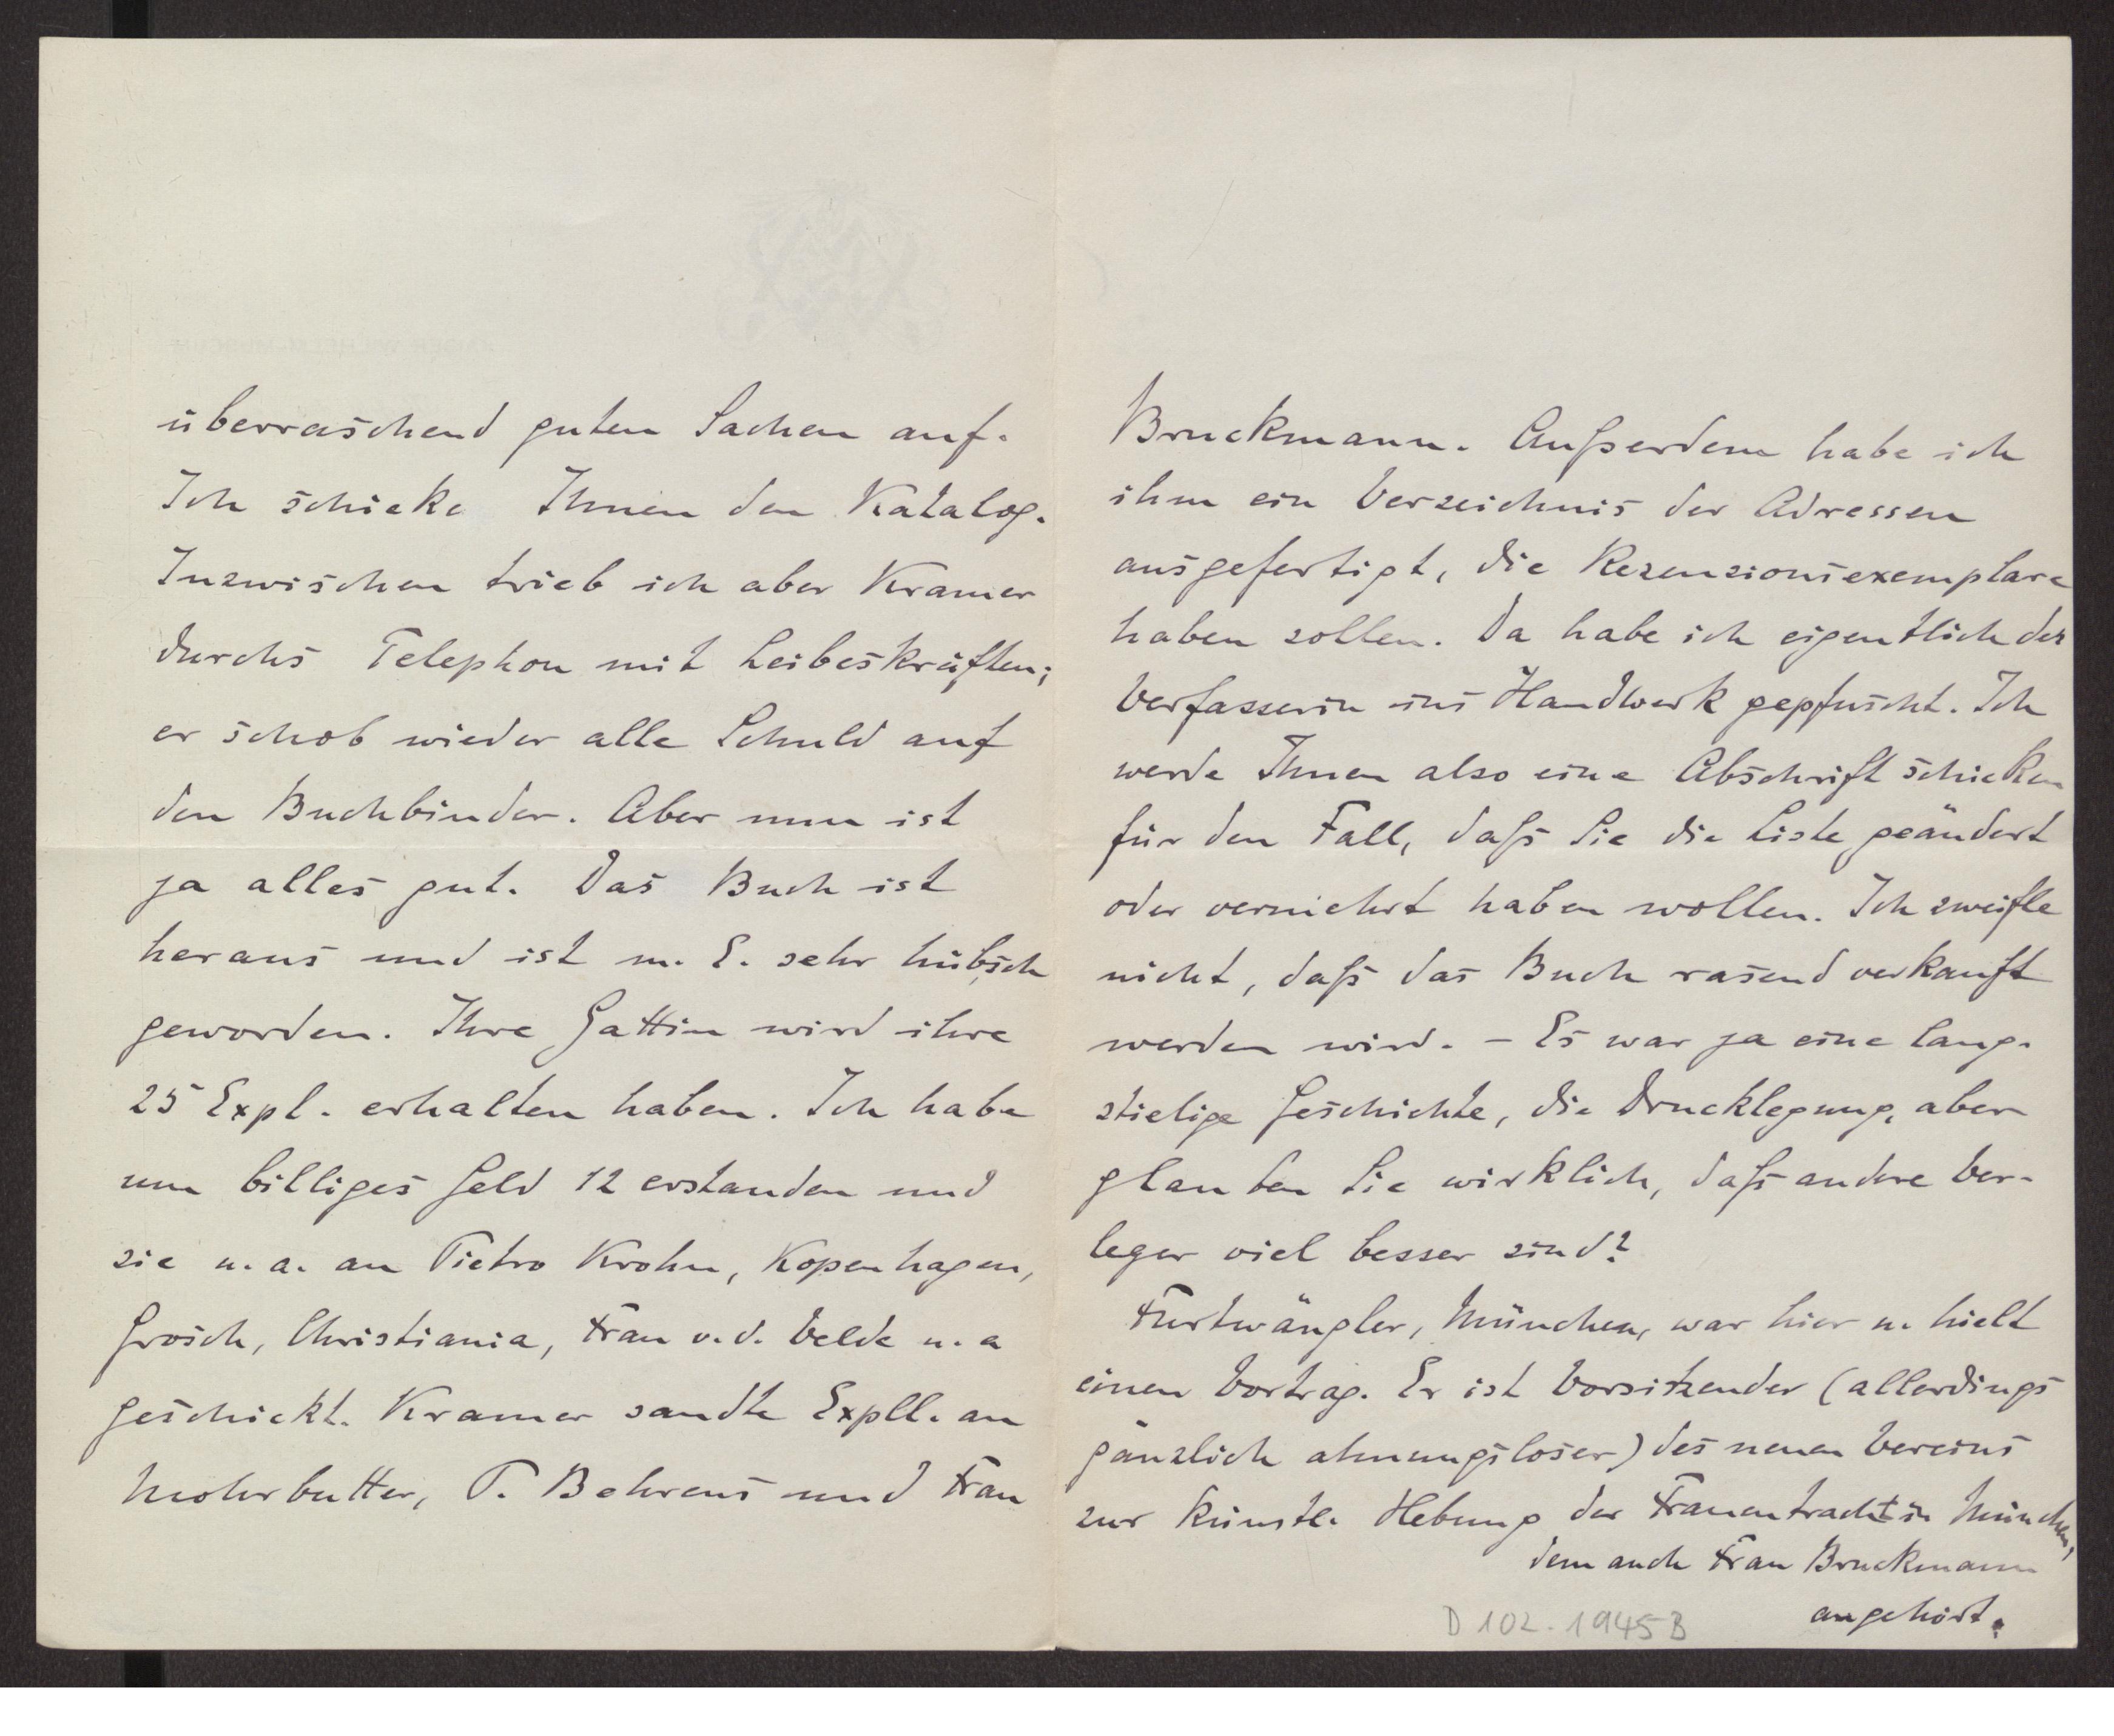 überraschend guten Sachen auf.
Ich schicke Ihnen den Katalog.
Inzwischen trieb ich aber Kramer
durchs Telephon mit Leibeskräften;
er schob wieder alle Schuld auf
den Buchbinder. Aber nun ist
ja alles gut. Das Buch ist
heraus und ist m. E. sehr hübsch
geworden. Ihre Gattin wird ihre
25 Expl. erhalten haben. Ich habe
um billiges Geld 12 erstanden und
sie u. a. an Pietro Krohn, Kopenhagen,
Grosch, Christiania, Frau v. d. Velde u. a
geschickt. Kramer sandte Expll. an
Mohrbutter, P. Behrens und Frau
Bruckmann. Außerdem habe ich
ihm ein Verzeichnis der Adressen
ausgefertigt, die Rezensionsexemplare
haben sollen. Da habe ich eigentlich der
Verfasserin ins Handwerk gepfuscht. Ich
werde Ihnen also eine Abschrift schicken
für den Fall, daß Sie die Liste geändert
oder vermehrt haben wollen. Ich zweifle
nicht, daß das Buch rasend verkauft
werden wird. – Es war ja eine lang-
stielige Geschichte, die Drucklegung, aber
glauben Sie wirklich, daß andre Ver-
leger viel besser sind?
Furtwängler, München, war hier u. hielt
einen Vortrag. Er ist Vorsitzender (allerdings
gänzlich ahnungsloser) des neuen Vereins
zur künstl. Hebung der Frauentracht in München,
dem auch Frau Bruckmann
angehört.
D 102. 1945 B